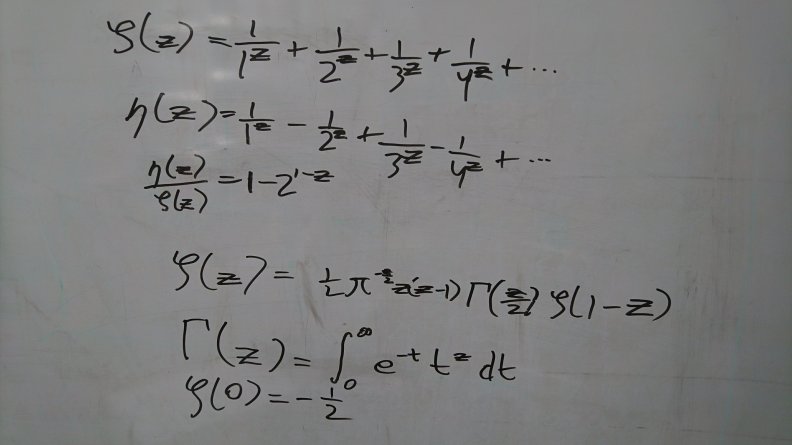 ζ(z) = 1/1^z + 1/2^z + 1/3^z + 1/4^z + ...
η(z) = 1/1^z - 1/2^z + 1/3^z - 1/4^z + ...
η(z)/ζ(z) = 1 - 2^(1-z)
ζ(z) = 1/2 π^(-z/2) z(z-1) Γ(z/2) ζ(1-z)
Γ(z) = ∫_0^∞ e^(-t) t^z dt
ζ(0) = -1/2